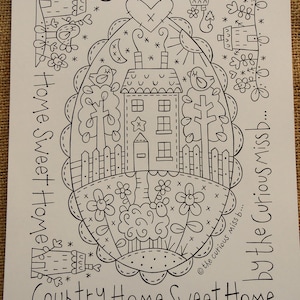 Home Sweet Home
by the Curious Miss b...
© the curious miss b...
Country Home Sweet Home